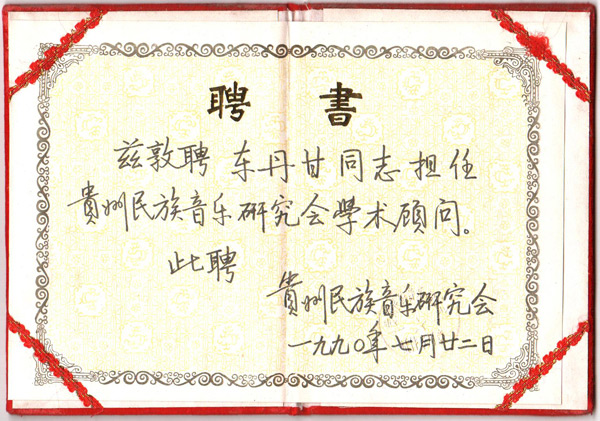 聘 書
兹敦聘 东丹甘同志担任
貴州民族音乐研究会學术顾问。
此聘
貴州民族音乐研究会
一九九〇年七月廿二日